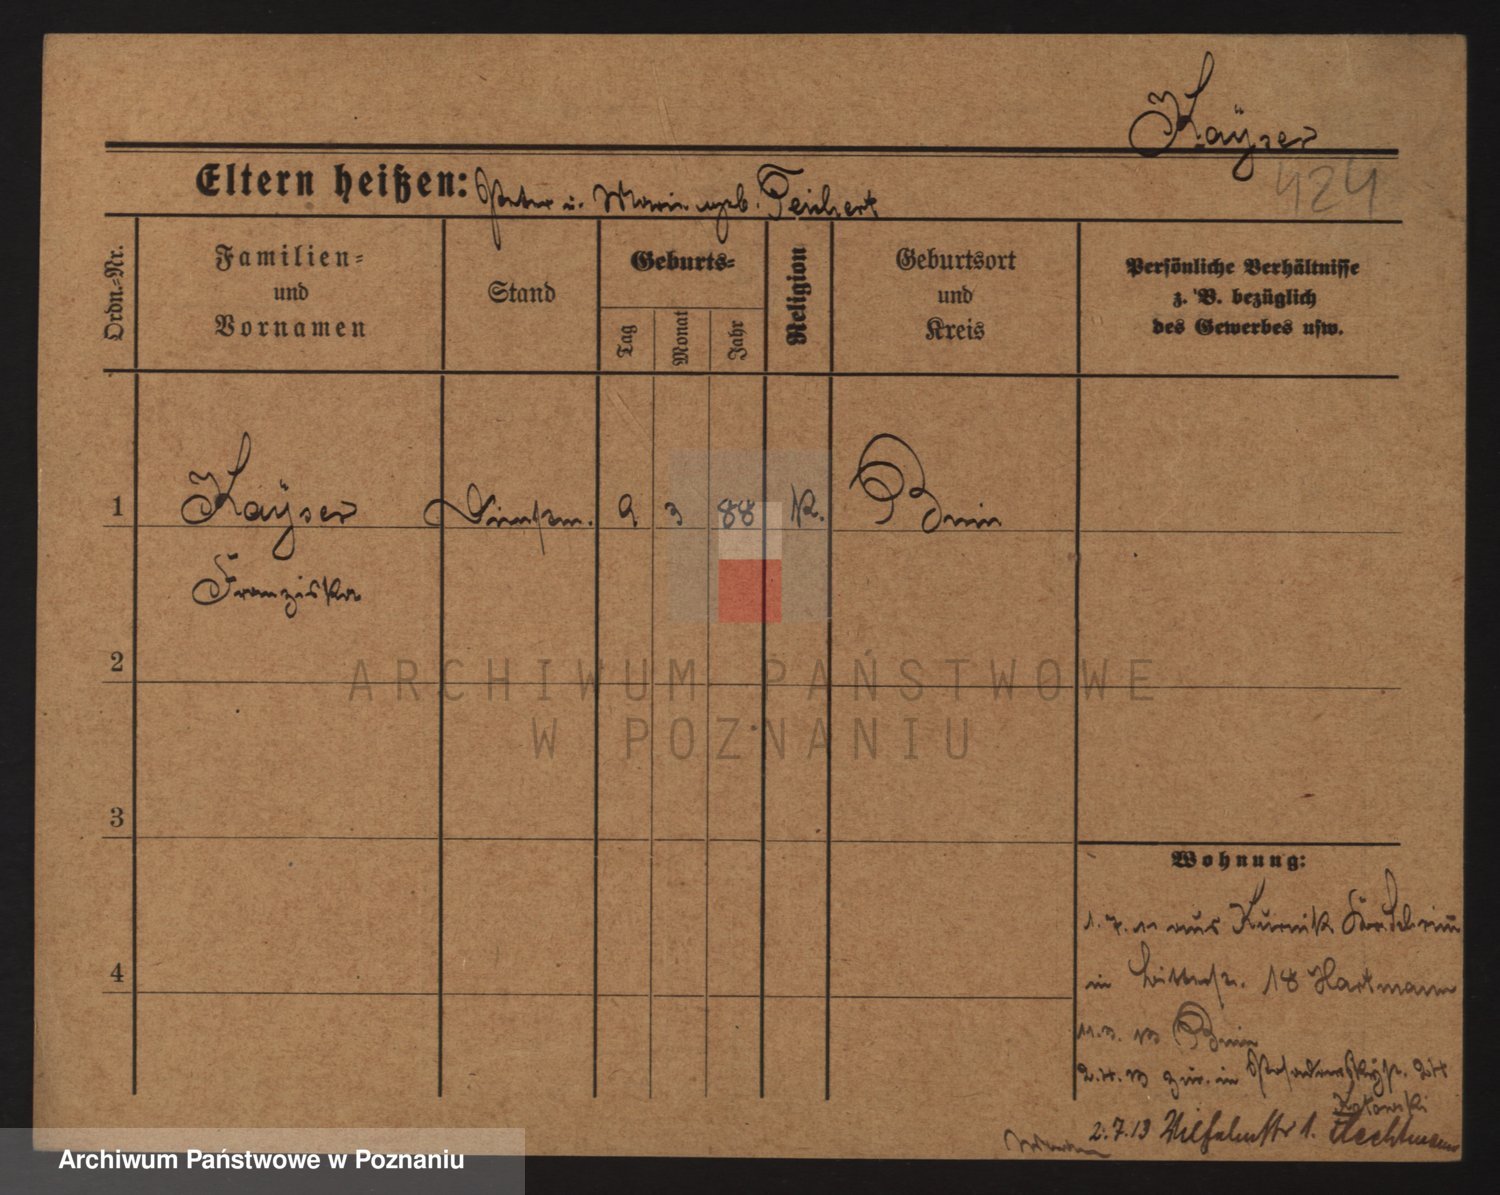 Kaÿser
424
Eltern heißen: Peter u. Marie geb. Teichert
Ordn.=Nr.
Familien=
und
Vornamen
Stand
Geburts=
Tag
Monat
Jahr
Religion
Geburtsort
und
Kreis
Persönliche Verhältnisse
z. B. bezüglich
des Gewerbes usw.
1 Kaÿser 9 3 88 K. Bnin
Franziska
2
3
4
Wohnung:
1. 7. 11 aus Kurnik Kr. Schrim
in 18 Hartmann
11. 3. 13 Bnin
2. 4. 13 zur. in 24
2. 7. 13 Wilhelmstr 1.
ARCHIWUM PAŃSTWOWE
W POZNANIU
Archiwum Państwowe w Poznaniu